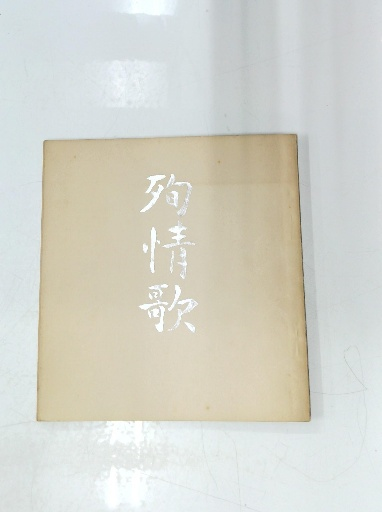 殉情歌